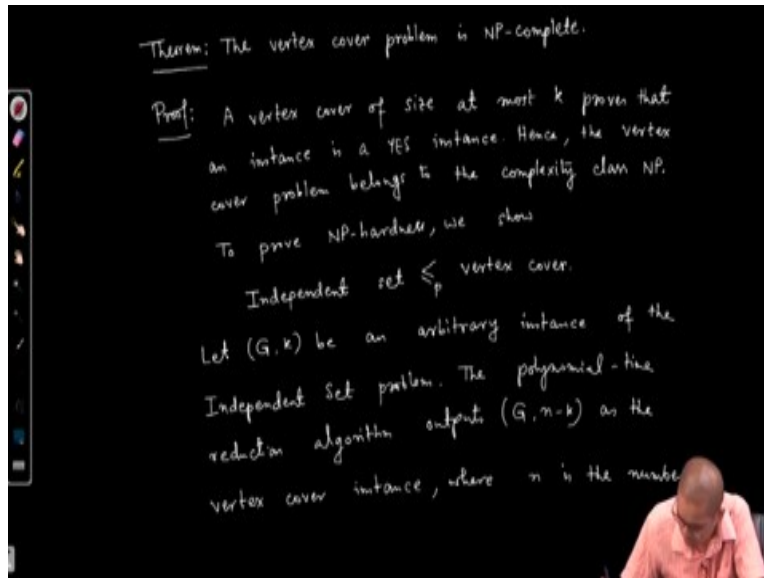 Theorem: The vertex cover problem is NP-complete.
Proof: A vertex cover of size at most k proves that
an instance is a YES instance. Hence, the vertex
cover problem belongs to the complexity class NP.
To prove NP-hardness, we show
Independent set ≤p vertex cover.
Let (G,k) be an arbitrary instance of the
Independent Set problem. The polynomial-time
reduction algorithm outputs (G, n-k) as the
vertex cover intance, where n is the numbe